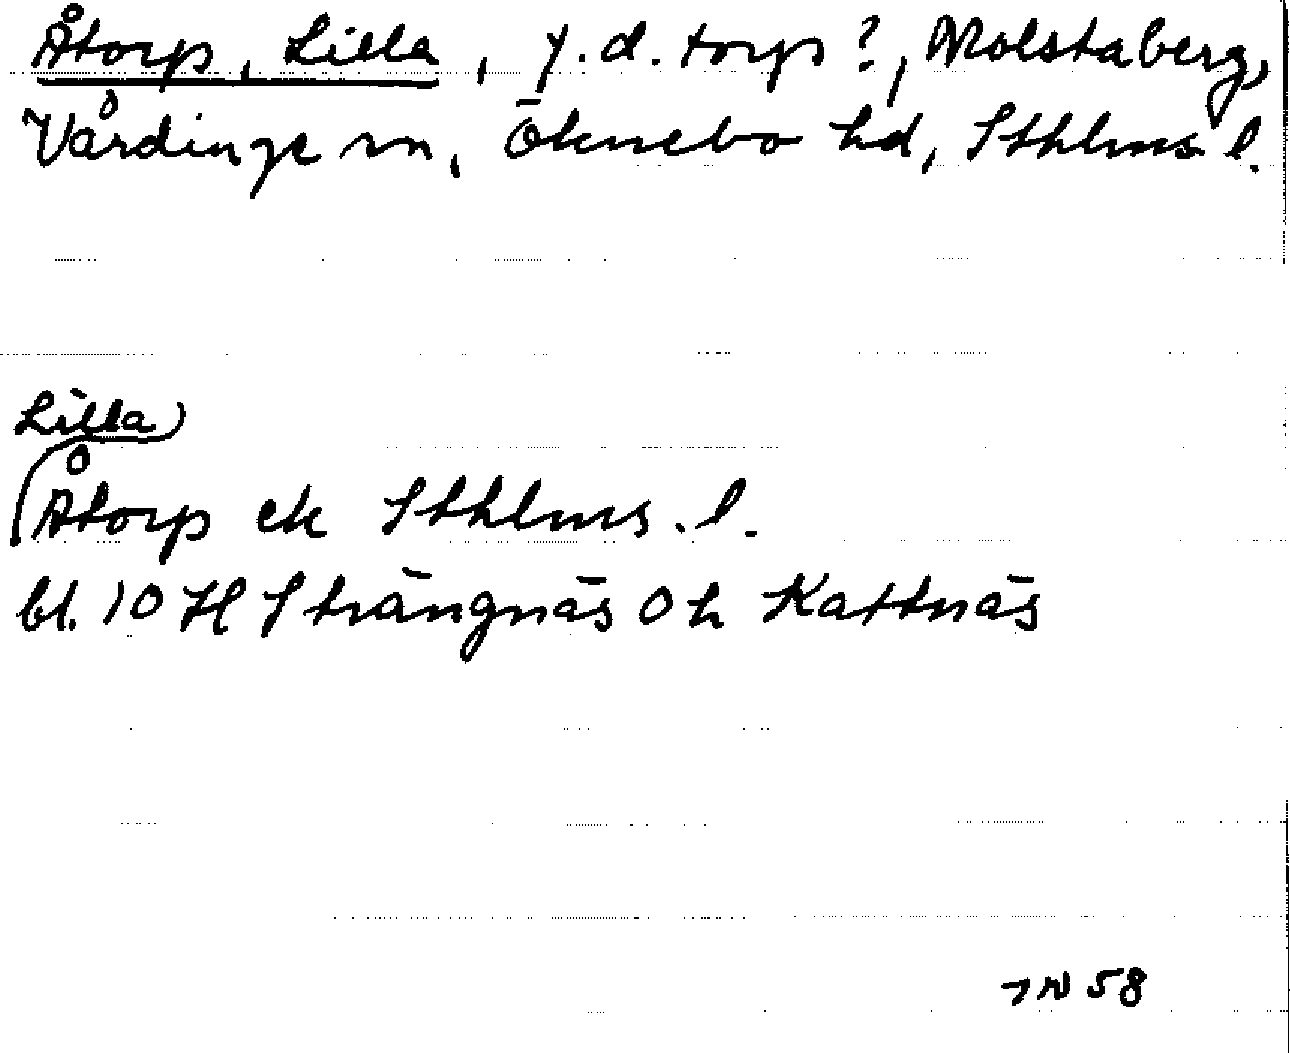 Åtorp, Lilla, f.d. torp?, Molstaberg,
Vårdinge sn, Öknebo hd, Sthlms l.
Lilla
Åtorp ek Sthlms. l.
bl. 10 H Strängnäs Oh Kattnäs
IN 58